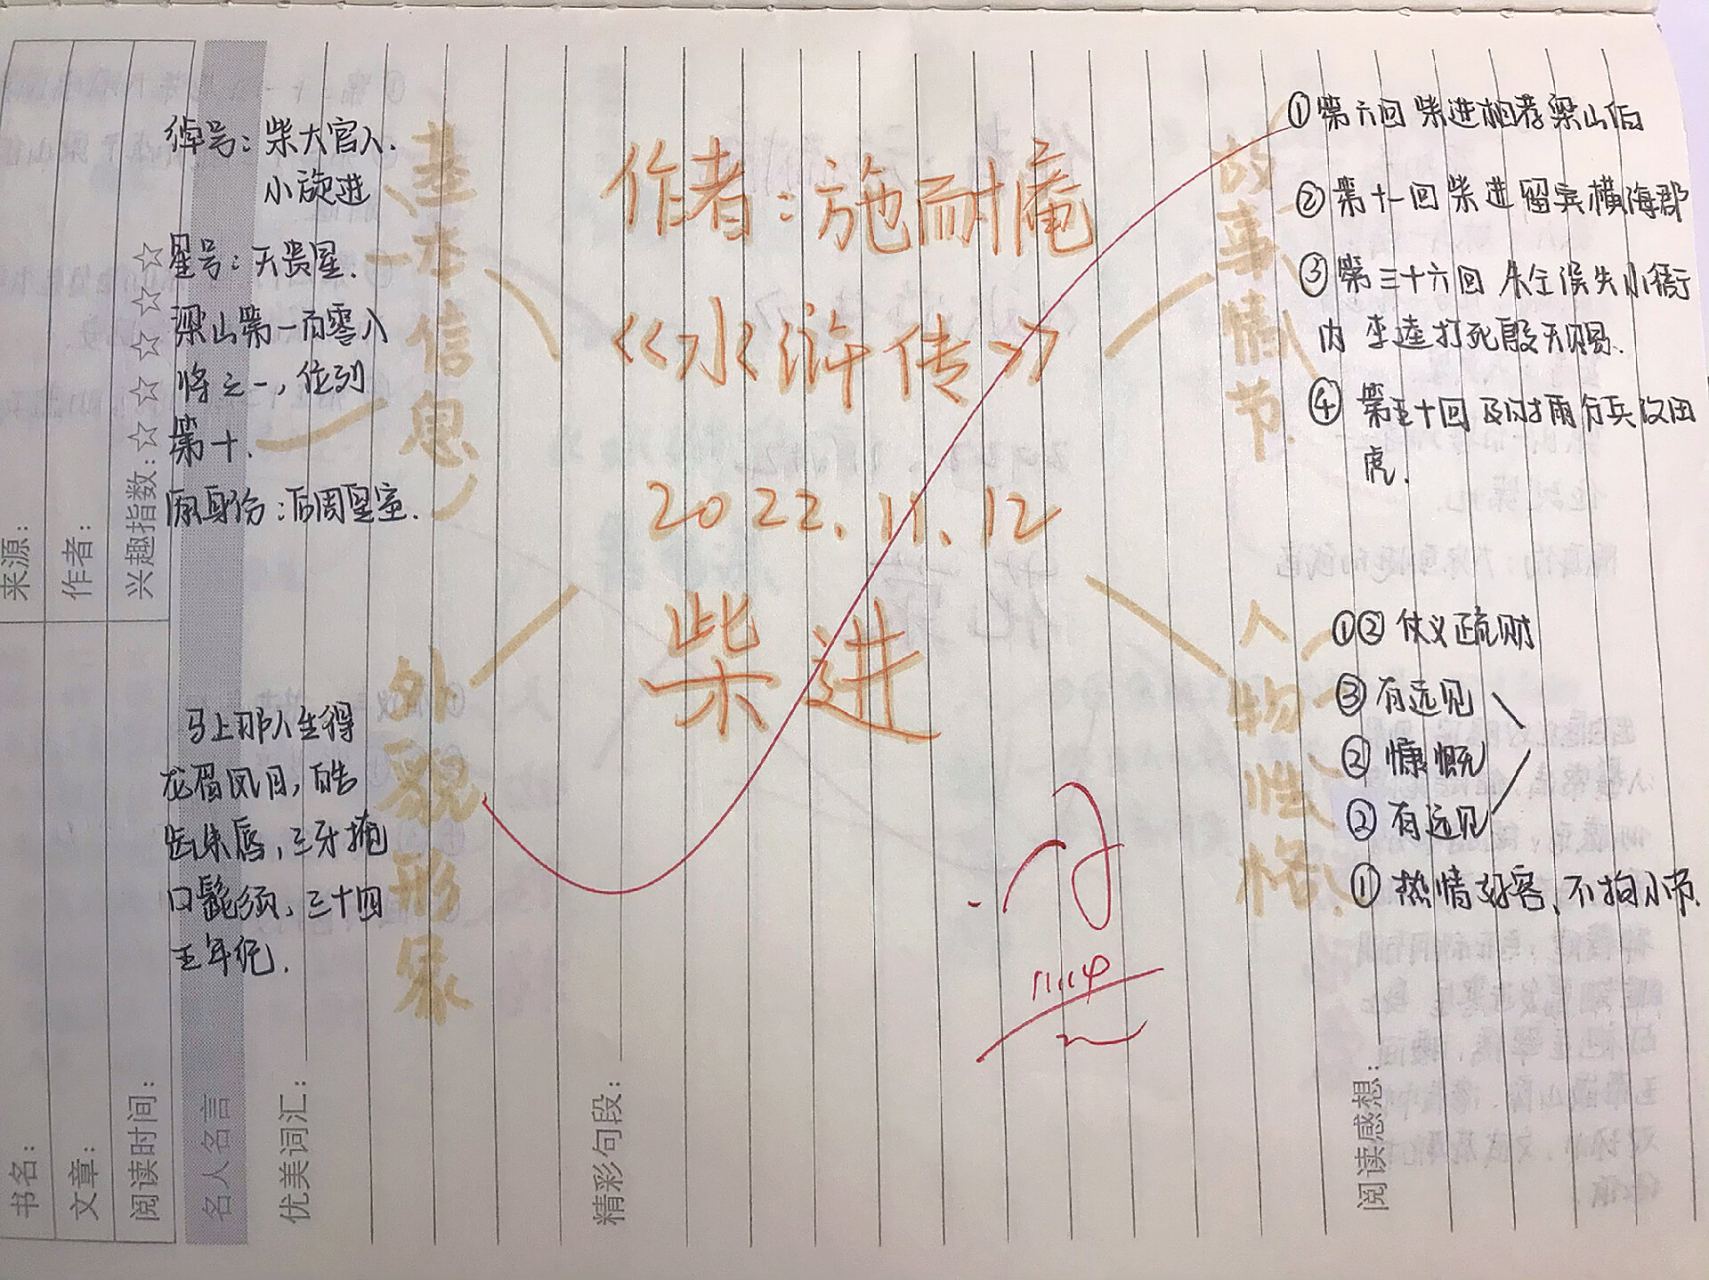 作者：施耐庵
《水浒传》
2022.11.12
柴进
基本信息
绰号：柴大官人.
小旋进
星号：天贵星.
梁山第一百零八
将之一，位列
第十.
原身份：后周皇室.
外貌形象
马上那人生得
龙眉凤目，皓
齿朱唇，三牙掩
口髭须，三十四
五年纪.
故事情节
①第六回 柴进相荐梁山伯
②第十一回 柴进留宾横海郡
③第三十六回 朱仝误失小衙
内 李逵打死殷天赐.
④第五十回 及时雨分兵攻田
虎.
人物性格
①② 仗义疏财
③ 有远见
② 慷慨
② 有远见
① 热情好客、不拘小节.
11.14
书名：
来源：
文章：
作者：
阅读时间：
兴趣指数：☆☆☆☆☆
名人名言
优美词汇：
精彩句段：
阅读感想：